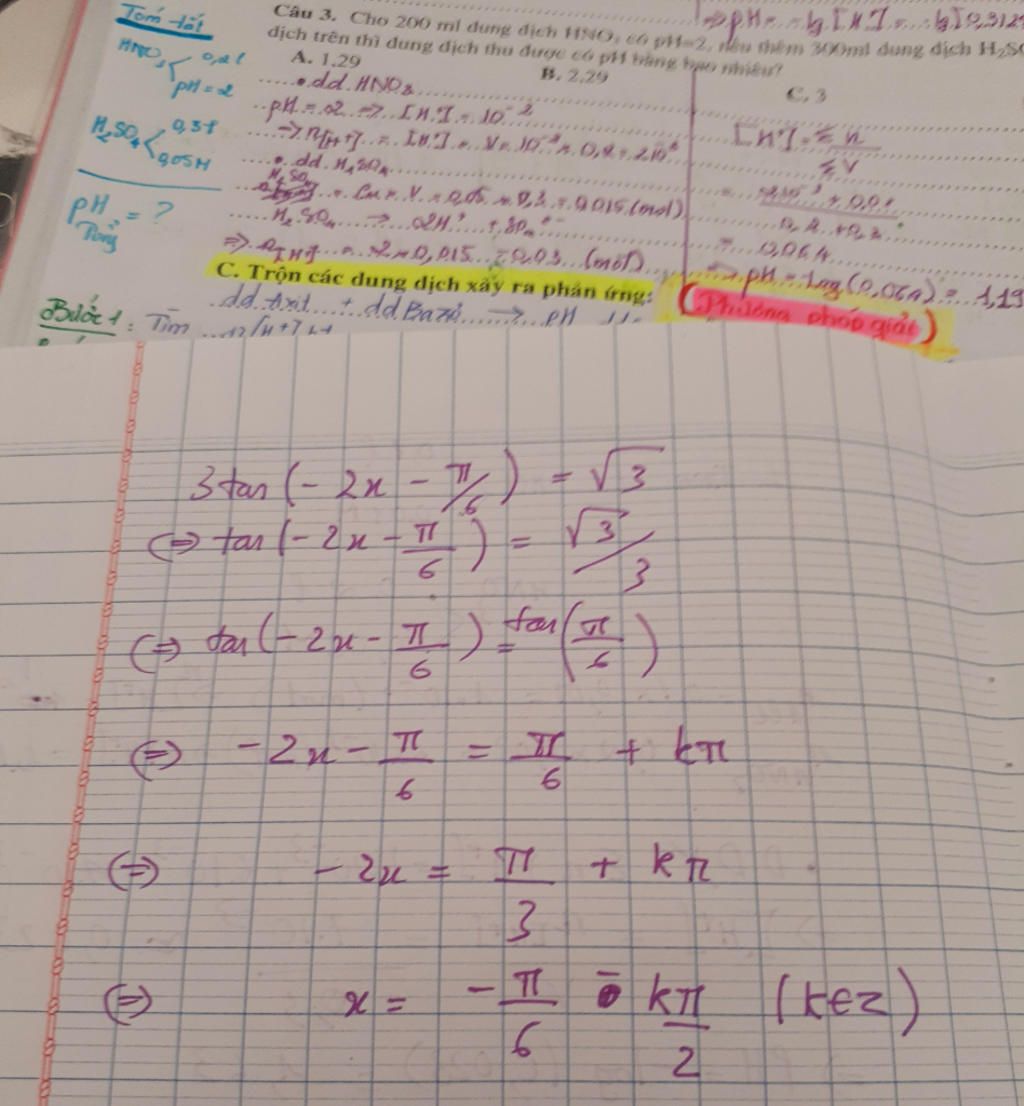 Tóm tắt
HNO₃ 0,2l
pH = 2
H₂SO₄ 0,3l
0,05M
pH = ?
Câu 3. Cho 200 ml dung dịch HNO₃ có pH=2, nếu thêm 300ml dung dịch H₂SO
dịch trên thì dung dịch thu được có pH bằng bao nhiêu?
A. 1,29
B. 2,29
C. 3
dd HNO₃
pH = 2 => [H⁺] = 10⁻²
dd H₂SO₄
= 0,05 × 0,3 = 0,015 (mol)
= 2 × 0,015 = 0,03 (mol)
[H⁺] = Σn / ΣV
= 0,064
=> pH = -log(0,064) = 1,19
C. Trộn các dung dịch xảy ra phản ứng:
(Phương pháp giải)
dd axit + dd Bazơ → pH
Bước 1: Tìm
3tan(-2x - π/6) = √3
(=) tan(-2x - π/6) = √3/3
(=) tan(-2x - π/6) = tan(π/6)
(=) -2x - π/6 = π/6 + kπ
(=) -2x = π/3 + kπ
(=) x = -π/6 - kπ/2 (k∈Z)